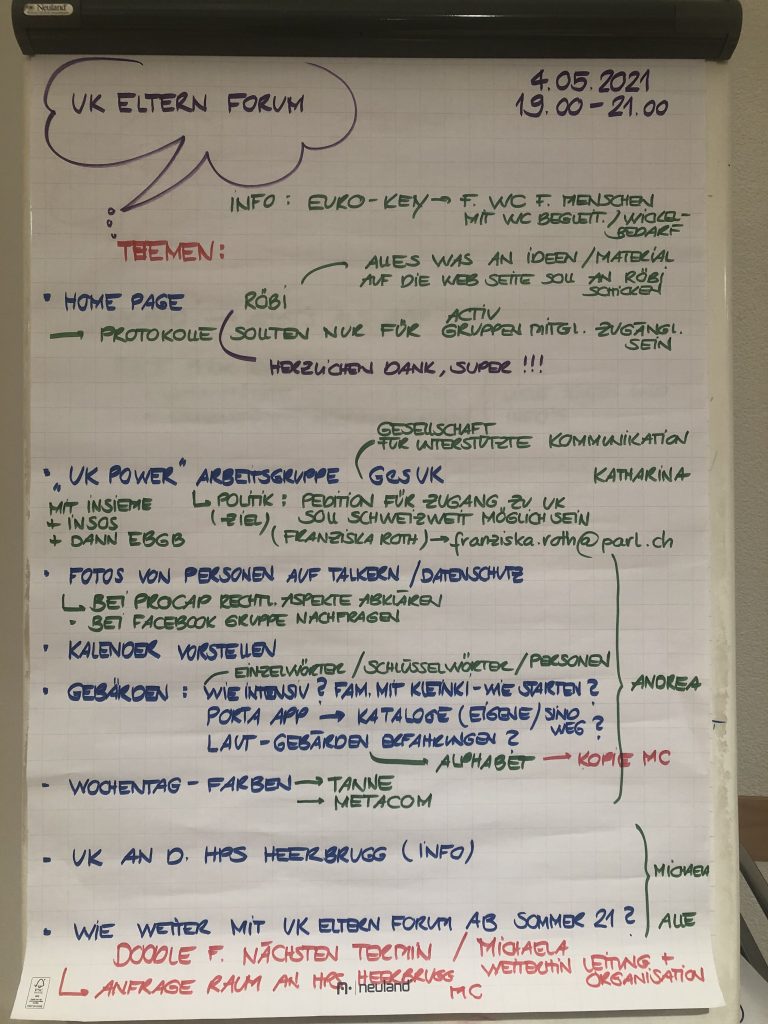 Neuland
UK ELTERN FORUM
4.05.2021
19.00-21.00
INFO: EURO-KEY → F. WC F. MENSCHEN
MIT WC BEGLEIT./WICKEL-
BEDARF
THEMEN:
ALLES WAS AN IDEEN/MATERIAL
AUF DIE WEB SEITE SOLL AN RÖBI
SCHICKEN
• HOME PAGE RÖBI
→ PROTOKOLLE (SOLLTEN NUR FÜR ACTIV GRUPPENMITGL. ZUGÄNGL.
SEIN
HERZLICHEN DANK, SUPER !!!
GESELLSCHAFT
FÜR UNTERSTÜTZTE KOMMUNIKATION
• „UK POWER" ARBEITSGRUPPE GesUK KATHARINA
MIT INSIEME
+ INSOS
+ DANN EBGB
↳ POLITIK: PEDITION FÜR ZUGANG ZU UK
(ZIEL) SOLL SCHWEIZWEIT MÖGLICH SEIN
(FRANZISKA ROTH) → franziska.roth@parl.ch
• FOTOS VON PERSONEN AUF TALKERN/DATENSCHUTZ
↳ BEI PROCAP RECHTL. ASPEKTE ABKLÄREN
• BEI FACEBOOK GRUPPE NACHFRAGEN
• KALENDER VORSTELLEN
EINZELWÖRTER/SCHLÜSSELWÖRTER/PERSONEN
• GEBÄRDEN: WIE INTENSIV? FAM. MIT KLEINKI-WIE STARTEN?
ANDREA
PORTA APP → KATALOGE (EIGENE/SIND
WEG?
LAUT-GEBÄRDEN ERFAHRUNGEN?
→ ALPHABET → KOPIE MC
• WOCHENTAG-FARBEN → TANNE
→ METACOM
• UK AN D. HPS HEERBRUGG (INFO)
MICHAELA
• WIE WEITER MIT UK ELTERN FORUM AB SOMMER 21? ALLE
DOODLE F. NÄCHSTEN TERMIN / MICHAELA
WEITERHIN LEITUNG +
ORGANISATION
↳ ANFRAGE RAUM AN HPS HEERBRUGG
MC
neuland
FSC